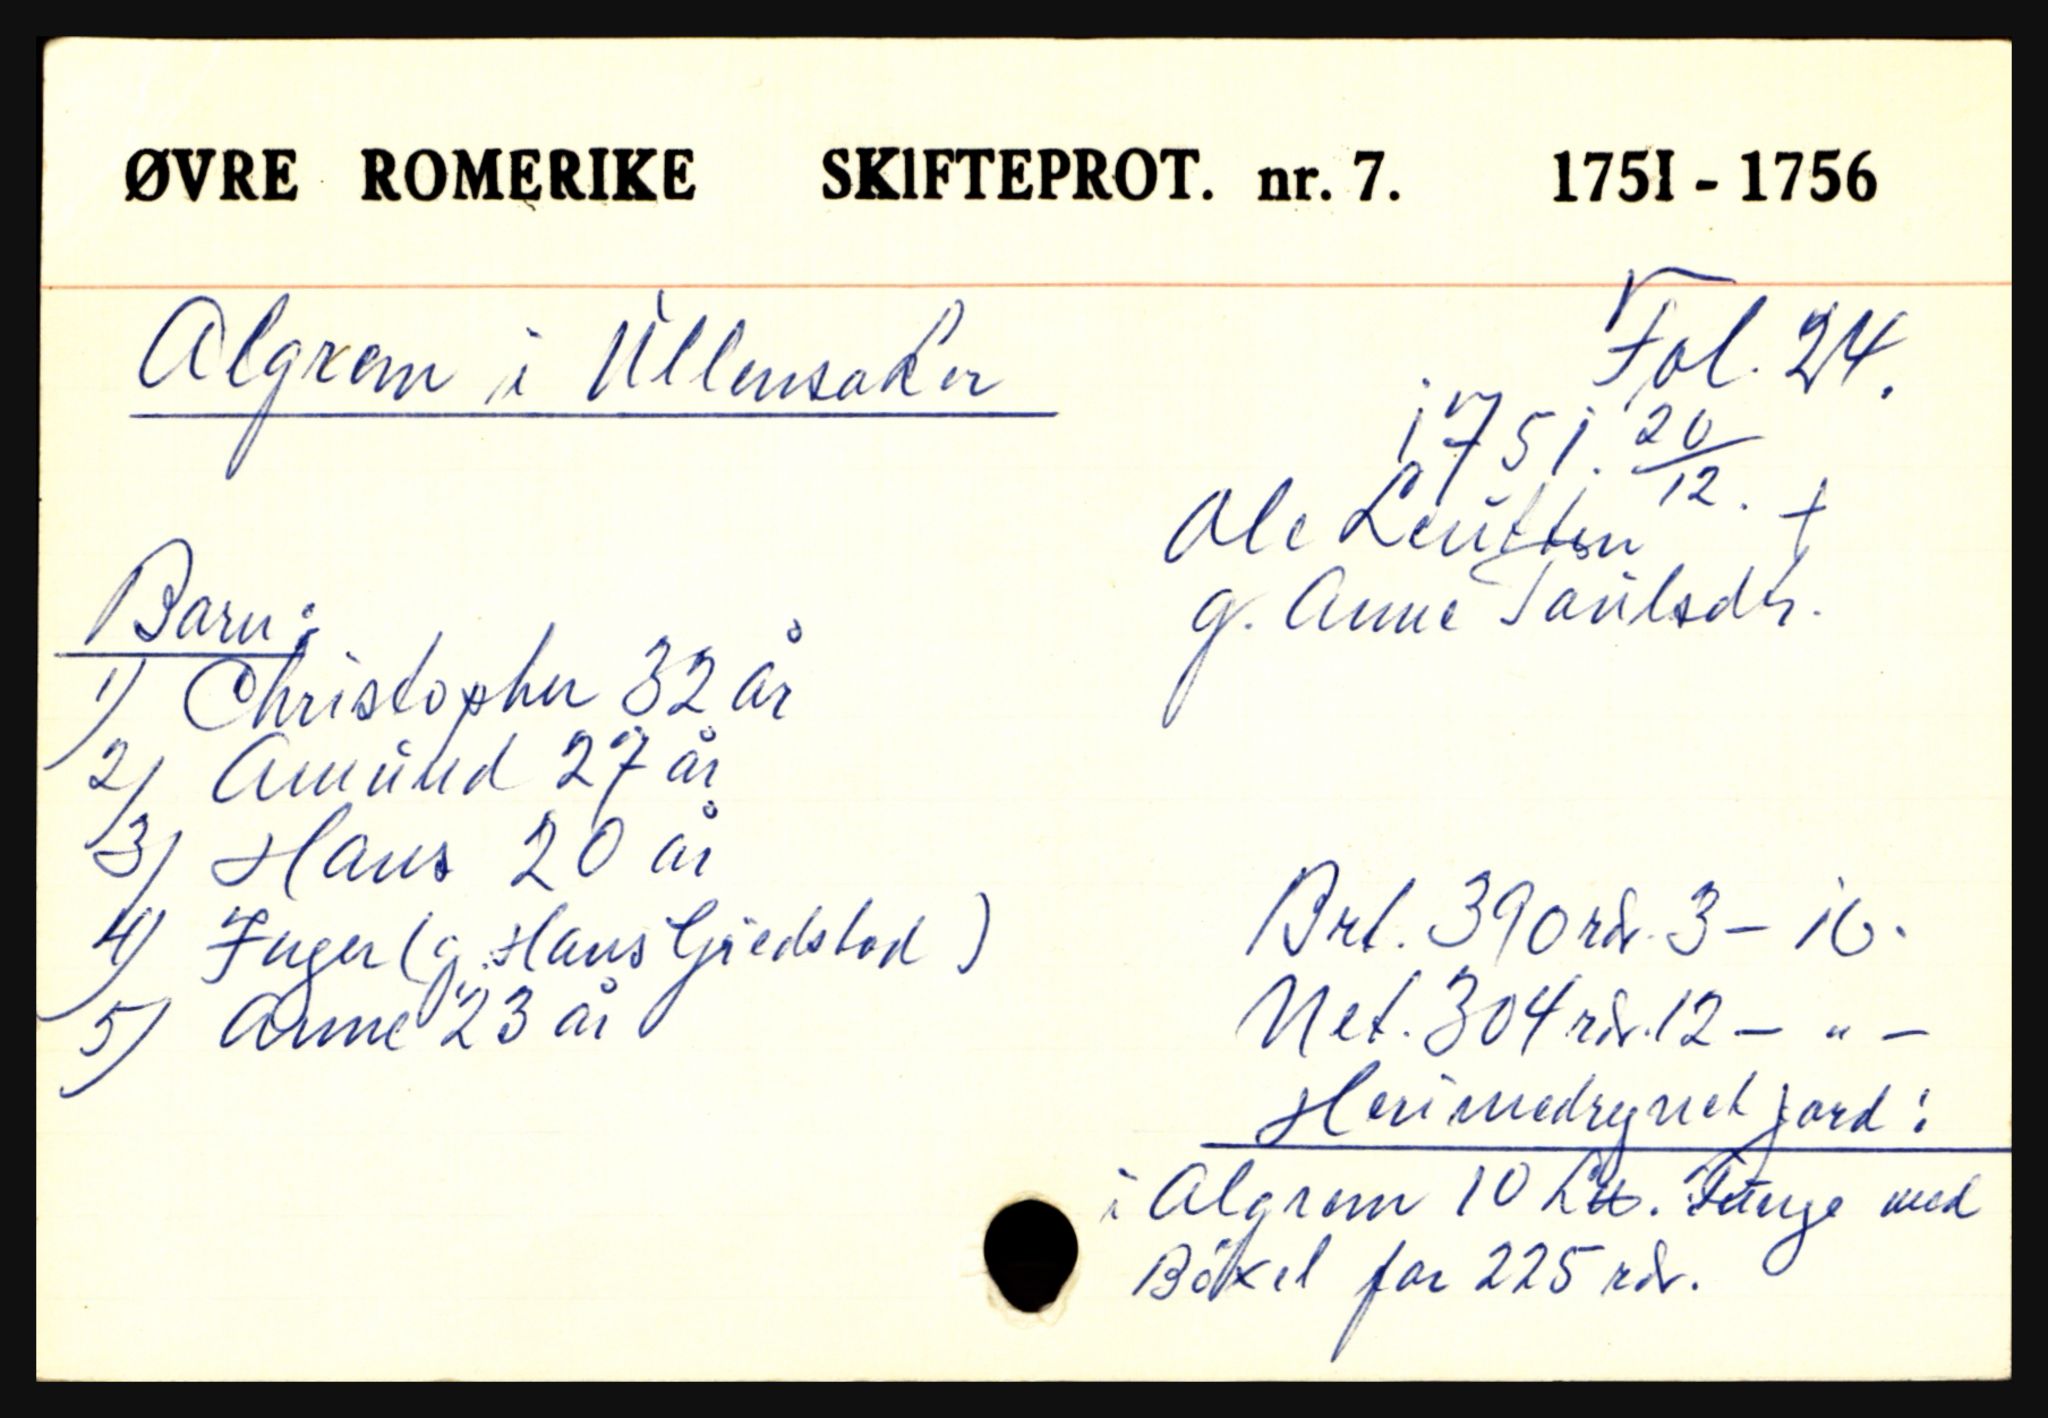 ØVRE ROMERIKE SKIFTEPROT. nr. 7. 175I - 1756
Algrem i Ullensaker
Fol. 24.
1751. 20/12.
Ole †
g. Anne Paulsdtr.
Barn:
1) Christopher 32 år
2) Amund 27 år
3) Hans 20 år
4) Inger (g. Hans Gjiedstad)
5) Anne 23 år
Brt. 390 rdr. 3 - 16.
Net. 304 rdr. 12 - " -
Herimedregnet jord:
i Algrem 10 Lb. Tunge med
Böxel for 225 rdr.